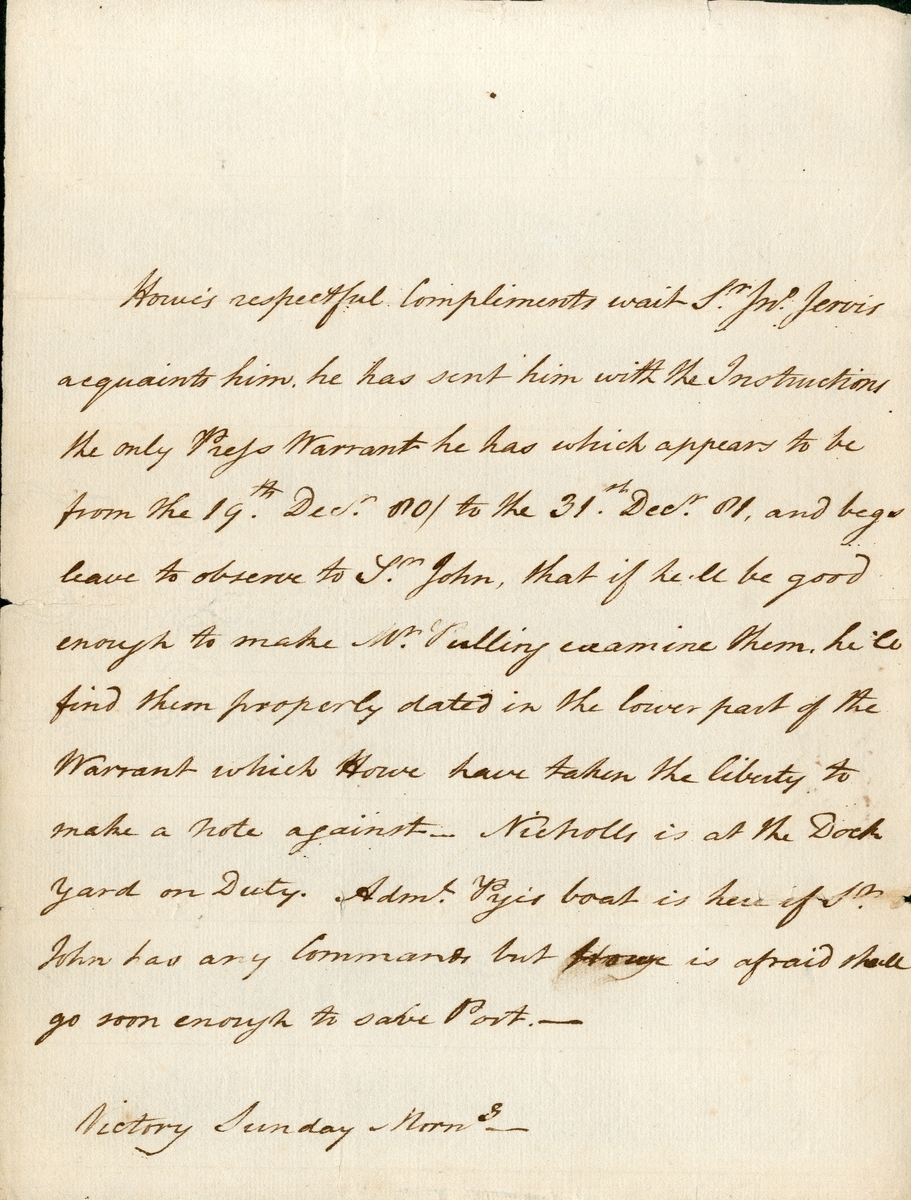 Howe's respectful Compliments wait Sr. Jno. Jervis
acquaints him, he has sent him with the Instructions
the only Press Warrant he has which appears to be
from the 19th. Decr. 80/ to the 31st. Decr. 81, and begs
leave to observe to Sr. John, that if he'll be good
enough to make Mr. Pulling examine them, he'll
find them properly dated in the lower part of the
Warrant which Howe have taken the liberty to
make a note against— Nicholls is at the Dock
yard on Duty. Adml. Pyes boat is here if Sr.
John has any Commands but Howe is afraid shall
go soon enough to save Post.—
Victory Sunday Morng—